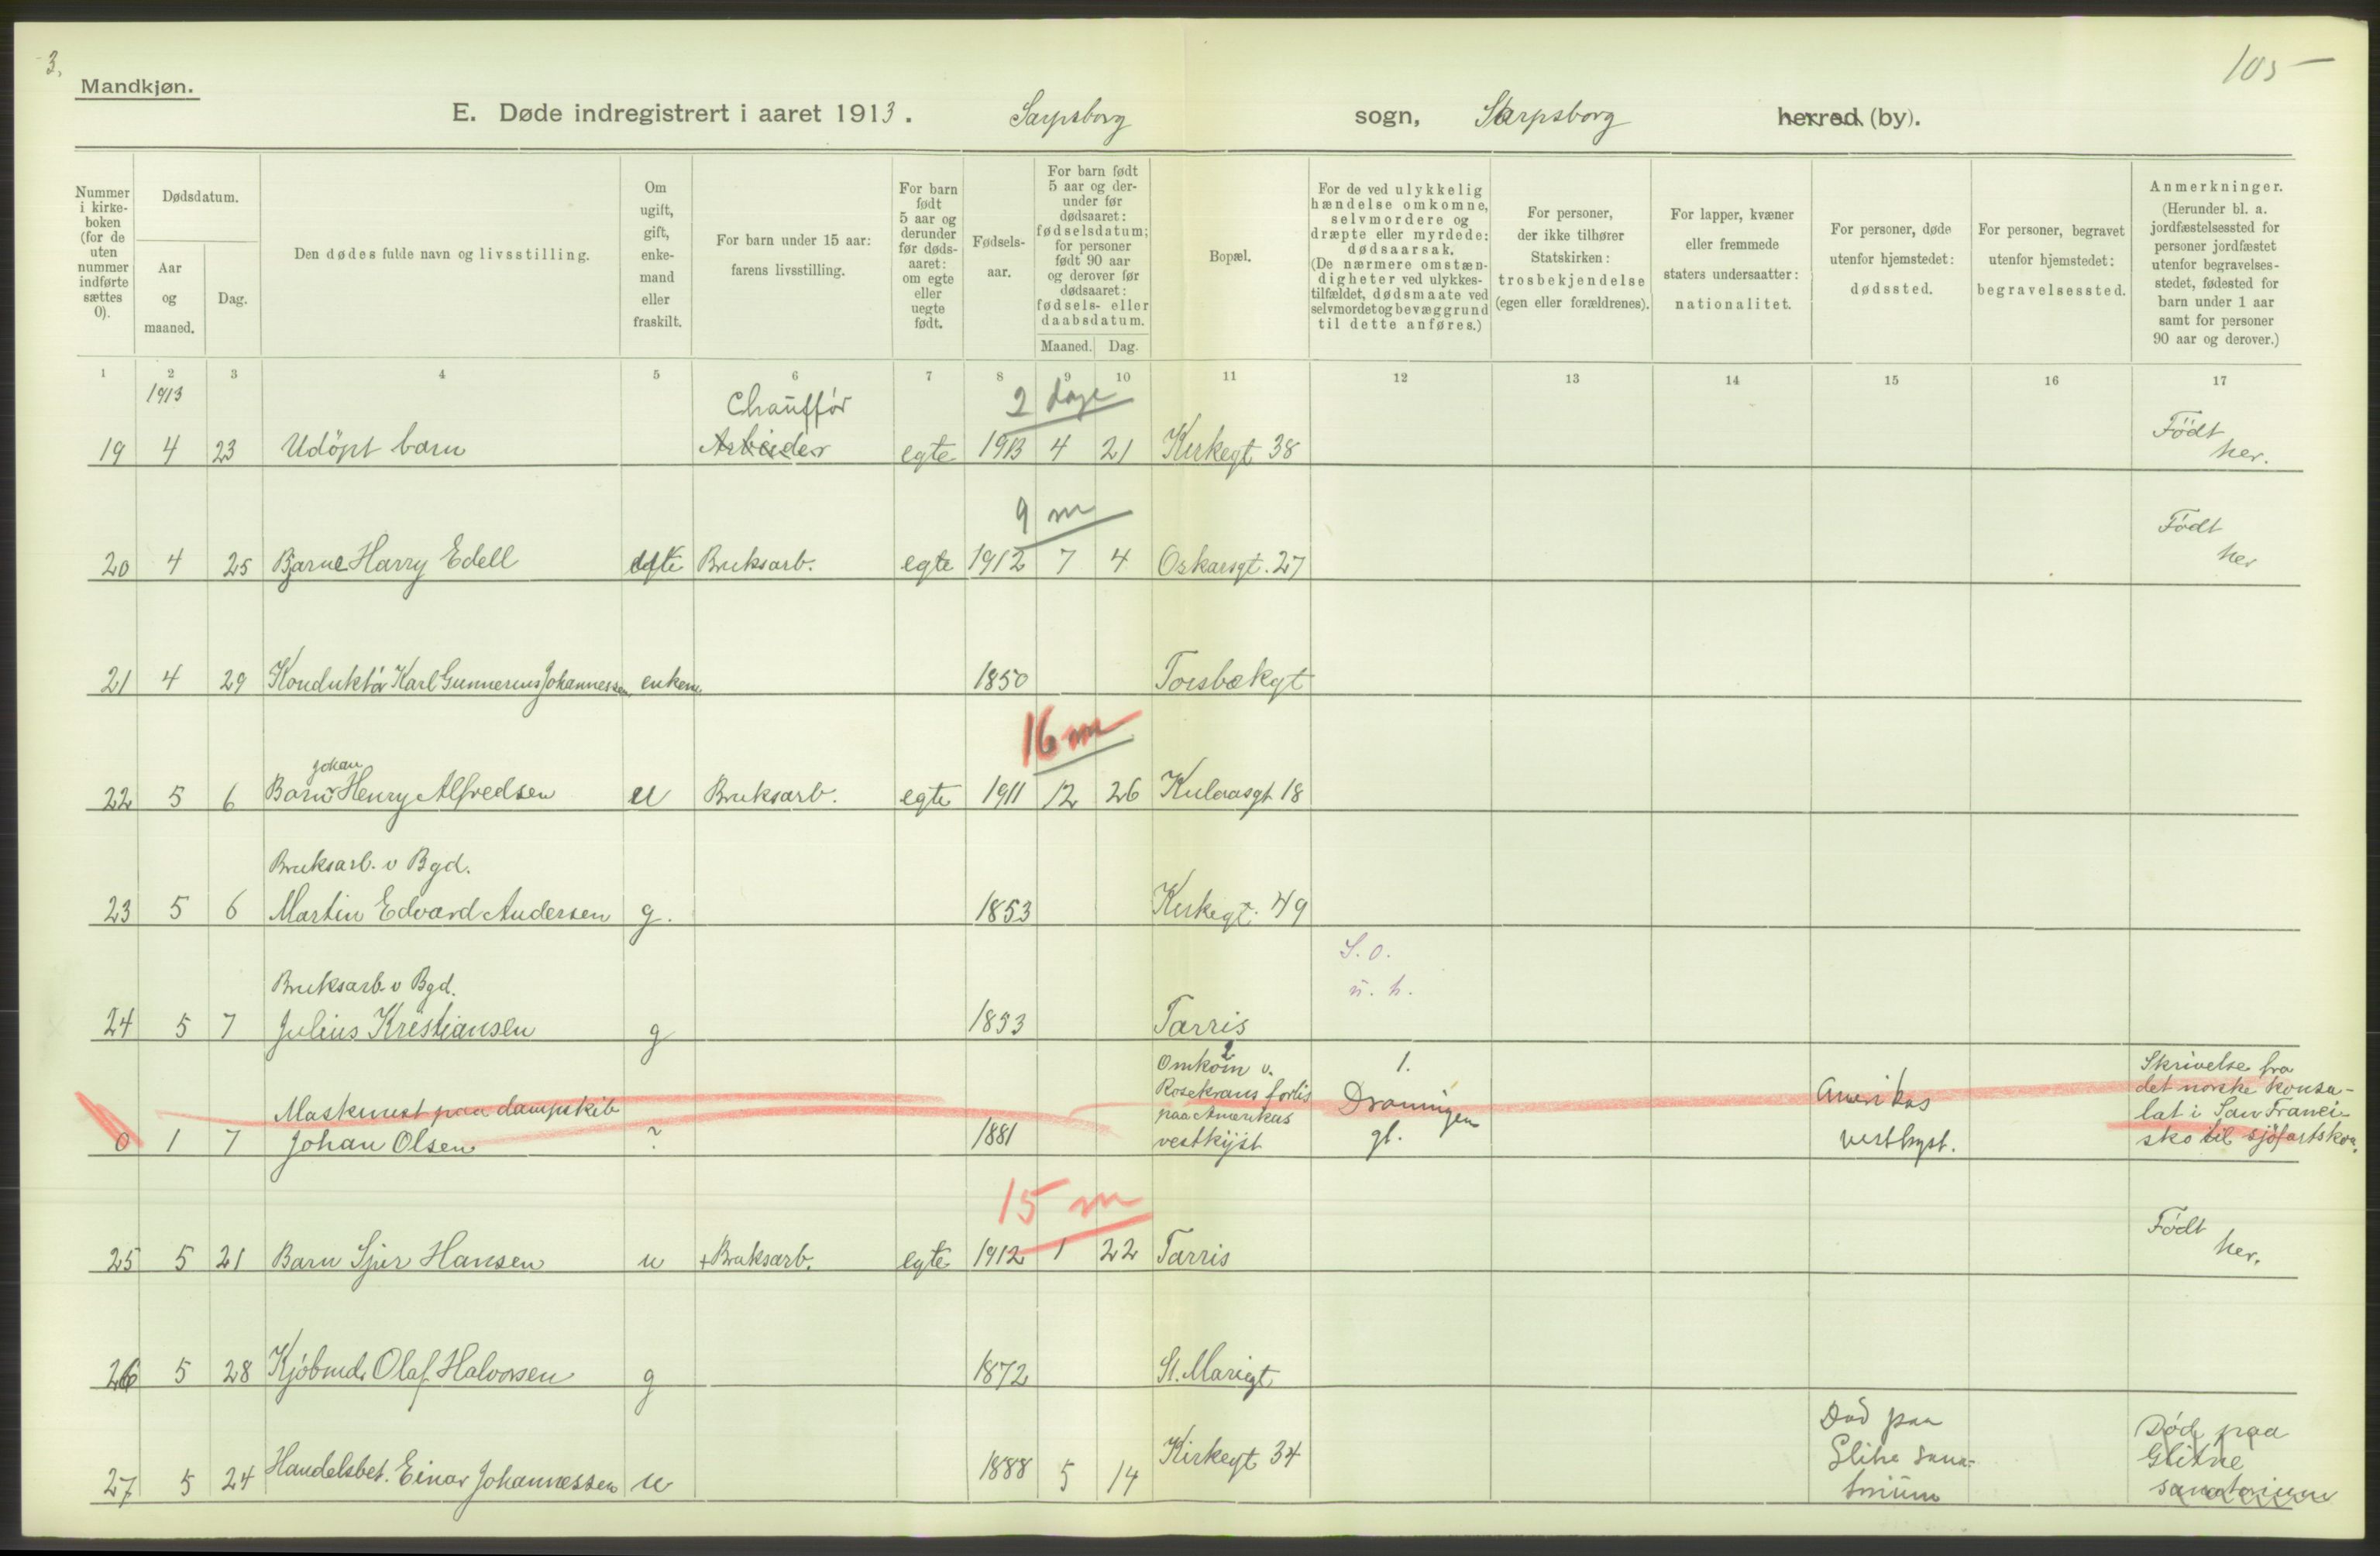 3.
105
Mandkjøn.
E. Døde indregistrert i aaret 1913. Sarpsborg sogn, Sarpsborg herred (by).
Nummer i kirke-boken (for de uten nummer indførte sættes 0).
Dødsdatum.
Aar og maaned.
Dag.
Den dødes fulde navn og livsstilling.
Om ugift, gift, enke-mand eller fraskilt.
For barn under 15 aar: farens livsstilling.
For barn født 5 aar og derunder før døds-aaret: om egte eller uegte født.
Fødsels-aar.
For barn født 5 aar og der-under før dødsaaret: fødselsdatum; for personer født 90 aar og derover før dødsaaret: fødsels- eller daabsdatum.
Maaned. Dag.
Bopæl.
For de ved ulykkelig hændelse omkomne, selvmordere og dræpte eller myrdede: dødsaarsak. (De nærmere omstæn-digheter ved ulykkes-tilfældet, dødsmaate ved selvmordet og bevæggrund til dette anføres.)
For personer, der ikke tilhører Statskirken: trosbekjendelse (egen eller forældrenes).
For lapper, kvæner eller fremmede staters undersaatter: nationalitet.
For personer, døde utenfor hjemstedet: dødssted.
For personer, begravet utenfor hjemstedet: begravelsessted.
Anmerkninger. (Herunder bl. a. jordfæstelsessted for personer jordfæstet utenfor begravelses-stedet, fødested for barn under 1 aar samt for personer 90 aar og derover.)
1 2 3 4 5 6 7 8 9 10 11 12 13 14 15 16 17
1913
Chauffør
2 dage
19 4 23 Udöpt barn Arbeider egte 1913 4 21 Kirkegt 38 Födt her.
9 m
20 4 25 Bjarne Harry Edell Bruksarb. egte 1912 7 4 Oskarsgt. 27 Födt her
21 4 29 Konduktör Karl Gunnerius Johannessen enkem. 1850 Torsbækgt
16 m
Johan
22 5 6 Barn Henry Alfredsen u Bruksarb. egte 1911 12 26 Kulaasgt 18
Bruksarb. v Bgd.
23 5 6 Martin Edvard Andersen g. 1853 Kirkegt. 49
S. o.
u. h.
Bruksarb. v Bgd.
24 5 7 Julius Kristiansen g 1853 Tarris
Maskinist paa dampskib
0 1 7 Johan Olsen ? 1881
2
Omkom v.
Rosekrans forlis
paa Amerikas
vestkyst
1.
Drowningen
gl.
Amerikas
vestkyst.
Skrivelse fra
det norske konsu-
lat i San Franci-
sko til sjöfartskon.
15 m
25 5 21 Barn Sjur Hansen u + Bruksarb. egte 1912 1 22 Tarris Födt her.
26 5 28 Kjöbmd. Olaf Halvorsen g 1872 St. Marigt
27 5 24 Handelsbet. Einar Johannessen u 1888 5 14 Kirkegt 34
Död paa
Glitre sana-
torium
Död paa
Glitre
sanatorium